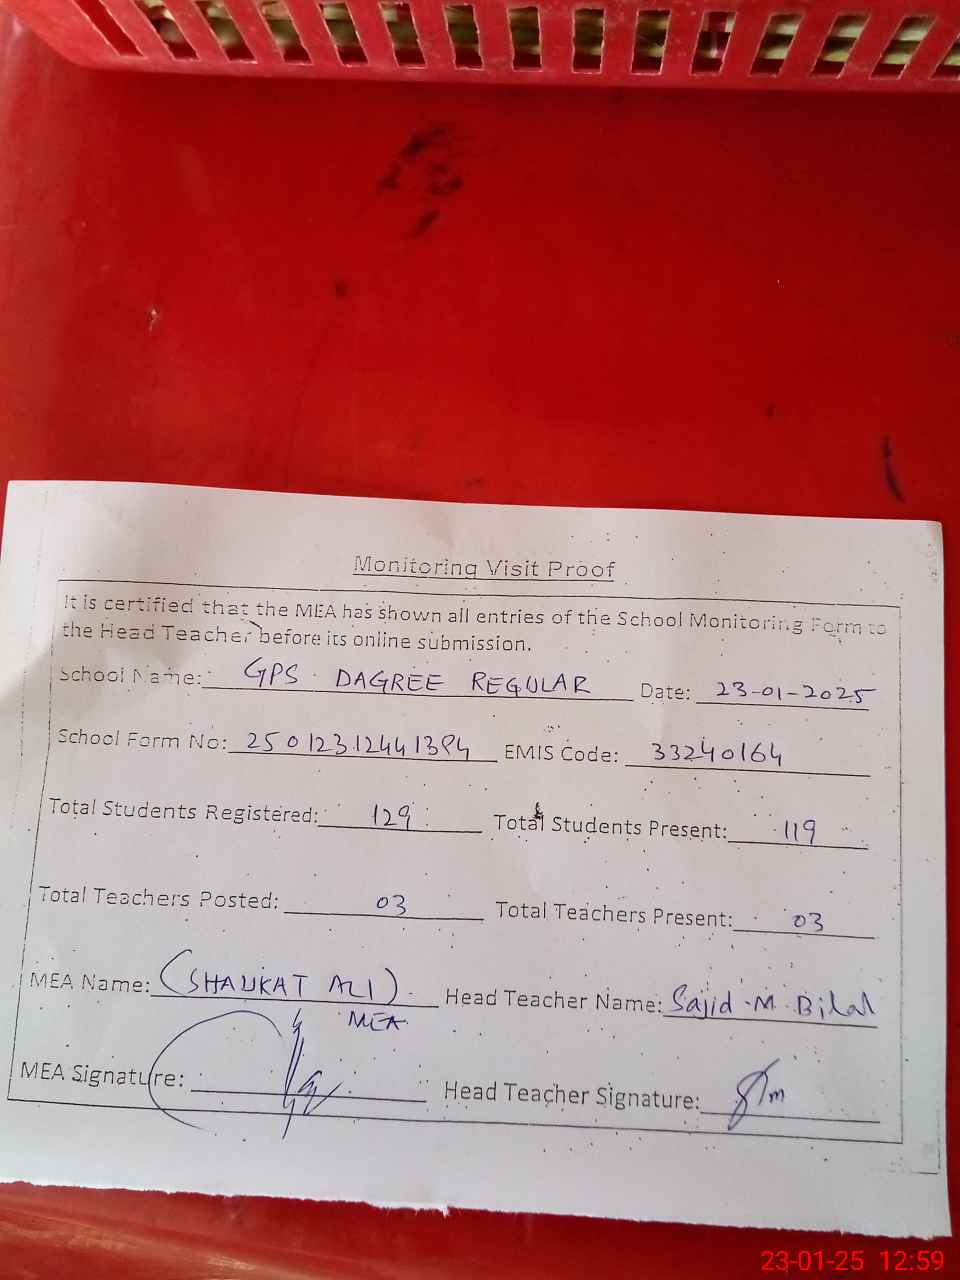 Monitoring Visit Proof
It is certified that the MEA has shown all entries of the School Monitoring Form to
the Head Teacher before its online submission.
School Name: GPS DAGREE REGULAR Date: 23-01-2025
School Form No: 25012312441384 EMIS Code: 33240164
Total Students Registered: 129 Total Students Present: 119
Total Teachers Posted: 03 Total Teachers Present: 03
MEA Name: (SHAUKAT ALI). Head Teacher Name: Sajid M Bilal
MEA
MEA Signature: Head Teacher Signature:
23-01-25 12:59